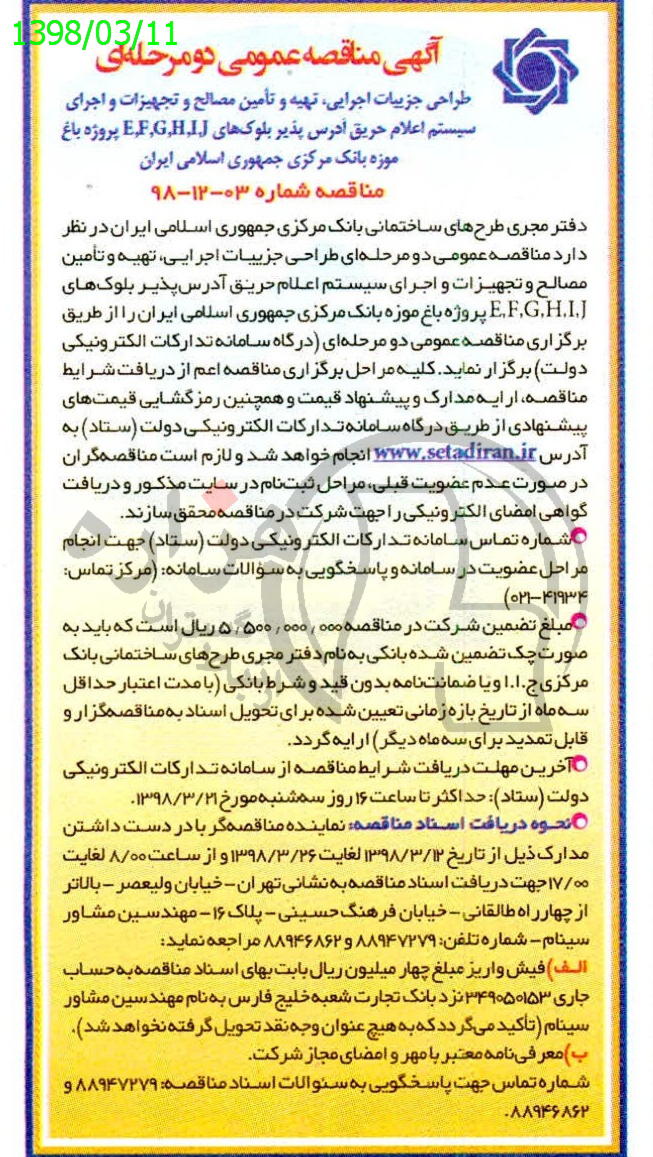 1398/03/11
آگهی مناقصه عمومی دو مرحله‌ای
طراحی جزییات اجرایی، تهیه و تأمین مصالح و تجهیزات و اجرای
سیستم اعلام حریق آدرس پذیر بلوک‌های E,F,G,H,I,J پروژه باغ
موزه بانک مرکزی جمهوری اسلامی ایران
مناقصه شماره ۰۳-۱۲-۹۸
دفتر مجری طرح‌های ساختمانی بانک مرکزی جمهوری اسلامی ایران در نظر
دارد مناقصه عمومی دو مرحله‌ای طراحی جزییات اجرایی، تهیه و تأمین
مصالح و تجهیزات و اجرای سیستم اعلام حریق آدرس‌پذیر بلوک‌های
E,F,G,H,I,J پروژه باغ موزه بانک مرکزی جمهوری اسلامی ایران را از طریق
برگزاری مناقصه عمومی دو مرحله‌ای (درگاه سامانه تدارکات الکترونیکی
دولت) برگزار نماید. کلیه مراحل برگزاری مناقصه اعم از دریافت شرایط
مناقصه، ارایه مدارک و پیشنهاد قیمت و همچنین رمزگشایی قیمت‌های
پیشنهادی از طریق درگاه سامانه تدارکات الکترونیکی دولت (ستاد) به
آدرس www.setadiran.ir انجام خواهد شد و لازم است مناقصه‌گران
در صورت عدم عضویت قبلی، مراحل ثبت‌نام در سایت مذکور و دریافت
گواهی امضای الکترونیکی را جهت شرکت در مناقصه محقق سازند.
شماره تماس سامانه تدارکات الکترونیکی دولت (ستاد) جهت انجام
مراحل عضویت در سامانه و پاسخگویی به سؤالات سامانه: (مرکز تماس:
۴۱۹۳۴-۰۲۱)
مبلغ تضمین شرکت در مناقصه ۵٫۵۰۰٫۰۰۰٫۰۰۰ ریال است که باید به
صورت چک تضمین شده بانکی به‌نام دفتر مجری طرح‌های ساختمانی بانک
مرکزی ج.ا.ا و یا ضمانت‌نامه بدون قید و شرط بانکی (با مدت اعتبار حداقل
سه ماه از تاریخ بازه زمانی تعیین شده برای تحویل اسناد به مناقصه‌گزار و
قابل تمدید برای سه ماه دیگر) ارایه گردد.
آخرین مهلت دریافت شرایط مناقصه از سامانه تدارکات الکترونیکی
دولت (ستاد): حداکثر تا ساعت ۱۶ روز سه‌شنبه مورخ ۱۳۹۸/۳/۲۱.
نحوه دریافت اسناد مناقصه: نماینده مناقصه‌گر با در دست داشتن
مدارک ذیل از تاریخ ۱۳۹۸/۳/۱۲ لغایت ۱۳۹۸/۳/۲۶ و از ساعت ۸/۰۰ لغایت
۱۷/۰۰ جهت دریافت اسناد مناقصه به نشانی تهران-خیابان ولیعصر-بالاتر
از چهارراه طالقانی-خیابان فرهنگ حسینی-پلاک ۱۶-مهندسین مشاور
سینام-شماره تلفن: ۸۸۹۴۷۲۷۹ و ۸۸۹۴۶۸۶۲ مراجعه نماید:
الف) فیش واریز مبلغ چهار میلیون ریال بابت بهای اسناد مناقصه به حساب
جاری ۳۴۹۰۵۰۱۵۳ نزد بانک تجارت شعبه خلیج فارس به‌نام مهندسین مشاور
سینام (تأکید می‌گردد که به هیچ عنوان وجه نقد تحویل گرفته نخواهد شد).
ب) معرفی‌نامه معتبر با مهر و امضای مجاز شرکت.
شماره تماس جهت پاسخگویی به سئوالات اسناد مناقصه: ۸۸۹۴۷۲۷۹ و
۸۸۹۴۶۸۶۲.